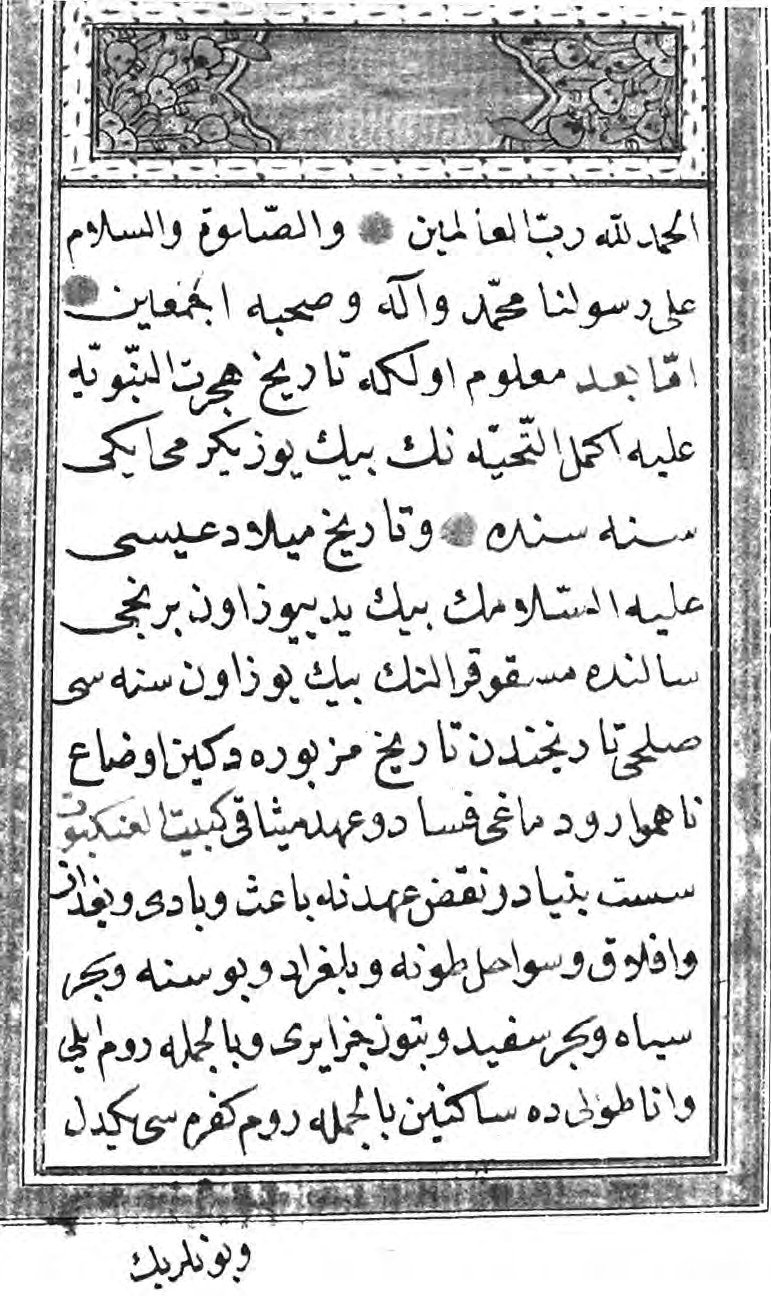 الحمد لله ربّ العالمين والصّلوة والسلام
على رسولنا محمّد وآله وصحبه اجمعين
امّا بعد معلوم اولكه تاريخ هجرت النبّويّه
عليه اكمل التّحيّه نك بيك يوز يكرمى ايكى
سنه سنده وتاريخ ميلاد عيسى
عليه السّلامك بيك يديوز اون برنجى
سالنده مسقو قرالنك بيك يوز اون سنه سى
صلحى تاريخندن تاريخ مزبوره دكين اوضاع
ناهموار ود ماغى فساد وعهد ميثاقى كبيت العنكبوت
سست بنياد در نقض عهدنه باعث وبادى وبغدان
وافلاق وسواحل طونه وبلغراد وبوسنه وبحر
سياه وبحر سفيد وبتون جزايرى وبالجمله روم ايلى
واناطولى ده ساكنين بالجمله روم كفره سى يكدل
وبونلريك